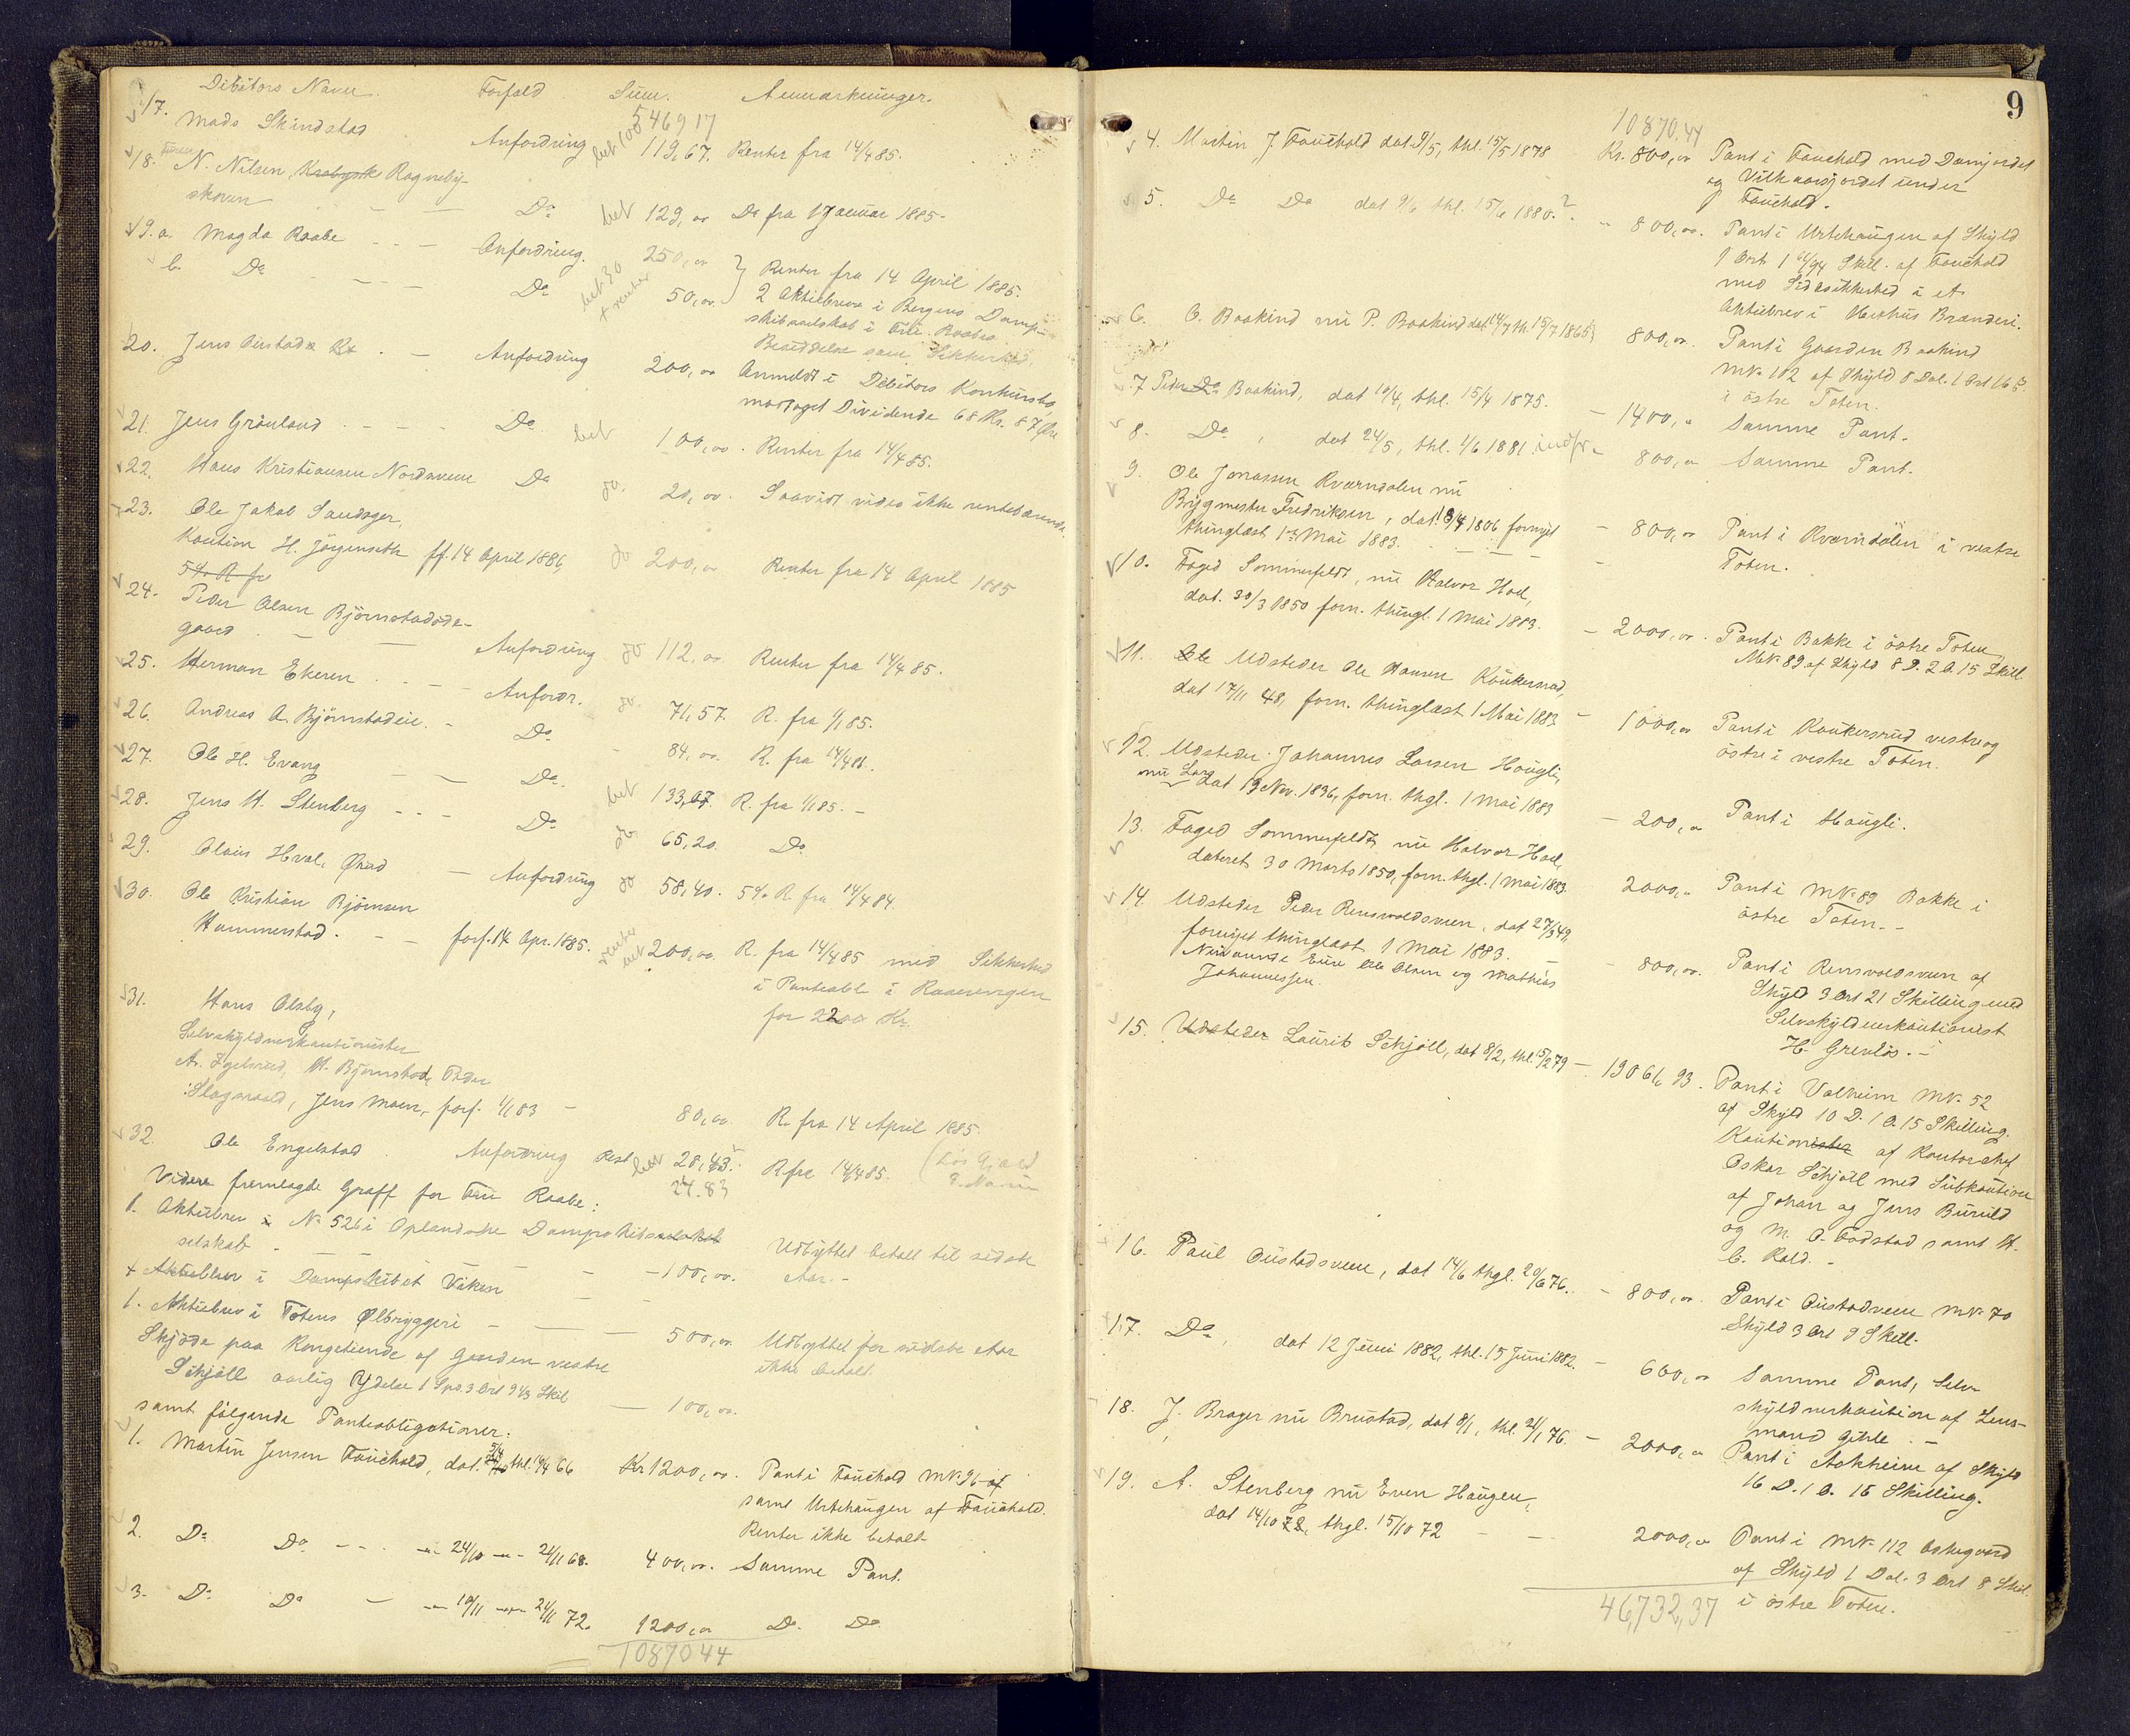 Debitors Navn. Forfald Sum. Anmærkninger.
5469 17
17. Mads Skindstad Anfordring bet 100 119,67. Renter fra 14/4 85.
18. N. Nilsen, Ragneby-
skoven — — Do bet 129,00 Do fra 1 Januar 1885.
19. a. Magda Raabe - - — Anfordring. 250,00 Renter fra 14 April 1885.
b. Do - - — Do bet 30 + renter 50,00 2 Aktiebreve i Bergens Damp-
skibsselskab i Fru Raabes
Besiddelse som Sikkerhed.
20. Jens Austad — Anfordring 200,00 Anmeldt i Debitors Konkursbo,
modtaget Dividende 68 Kr. 87 Øre
21. Jens Grönland - - - - Do bet 100,00. Renter fra 14/4 85.
22. Hans Kristiansen Nordsveen Do do. 20,00. Saavidt vides ikke rentebærende.
23. Ole Jakob Sandager,
Kaution H. Jörgenseth ff. 14 April 1886, do 200,00 Renter fra 14 April 1885
5% R. fra
24. Peder Olsen Björnstadöde-
gaard — — Anfordring do 112,00 Renter fra 14/4 85.
25. Herman Ekeren - - — Anfordr. do. 71,57. R. fra 1/1 85.
26. Andreas A. Björnstadeie. - Do - 84,00. R. fra 14/4 81.
27. Ole H. Evang — — Do. bet 133,67. R. fra 1/1 85. -
28. Jens H. Stenberg - - - Do do 65,20. Do
29. Olaus Hval, — Anfordring do 58,40. 5% R. fra 14/4 84.
30. Ole Kristian Björnsen
Hammerstad. - — forf. 14 Apr. 1885. renter bet 200,00. R. fra 14/4 85 med Sikkerhed
i Panteobl. i
for 2200 Kr.
31. Hans Olsby,
Selvskyldnerkautionister
A. Egelsrud, H. Björnstad, Peder
Slagsvold, Jens Moen, forf. 1/1 83 - 80,00. R. fra 14 April 1885.
32. Ole Engelstad Anfordring Rest bet 28,43. R fra 14/4 85. (Lös Gjæld
24.83
Videre fremlagde Graff for Fru Raabe:
1. Aktiebrev i No 526 i Oplandske Dampskibs
selskab - — — — 100,00. Udbyttet betalt til sidste
Aar. -
+ Aktiebrev i Dampskibet Viken — —
1. Aktiebrev i Totens Ölbryggeri - — — 500,00. Udbyttet for sidste Aar
ikke betalt.
Skjöde paa Kongetiende af Gaarden vestre
Schjöll aarlig Ydelse 1 Spd. 3 Ort 9 1/3 Skil — 100,00.
samt fölgende Panteobligationer:
1. Martin Jensen Fauchald, dat. thl. 19/4 66 Kr 1200,00. Pant i Fauchald MNo 96 af
samt Urtehaugen af Fauchald.
Renter ikke betalt
2. Do Do - - - 24/10 - 21/11 68. 400,00. Samme Pant.
3. Do Do — 19/11 - 21/11 72. 1200,00 Do. Do
10870 44
9
10870.44
4. Martin J. Fauchald dat 9/5, thl. 15/5 1878 Kr. 800,00 Pant i Fauchald med Damjordet
og under
Fauchald.
5. Do Do dat 9/6 thl. 15/6 1880. ? - 800,00. Pant i Urtehaugen af Skyld
1 Ort 1 Skill. af Fauchald
med Sidesikkerhed i et
Aktiebrev i Brænderi.
6. C. Baskind nu P. Baskind dat 14/7 th. 15/7 1865 800,00. Pant i Gaarden Baskind
MNo 112 af Skyld 8 Dal. 1 Ort 16 S.
i östre Toten.
7. Peder Baskind, dat 10/4, thl. 15/4 1875. — 1400,00 Samme Pant.
8. Do, dat 24/5, thl. 1/6 1881. indfr. 800,00 Samme Pant.
9. Ole Jonassen Kværndalen nu
Bygmester Fredriksen, dat. 8/4 1806 fornyet
thinglæst 1ste Mai 1883. — — — 800,00 Pant i Kværndalen i vestre
Toten.
10. Foged Sommerfeldt, nu Halvor Hoel,
dat. 30/3 1850 forn. thingl. 1 Mai 1883. — 2000,00. Pant i Bakke i östre Toten,
MNo 89 af Skyld 8 D. 2 O. 15 Skill
11. Udsteder Ole Hansen Kaukersrud,
dat 17/11 48, forn. thinglæst 1 Mai 1883 - 1000,00 Pant i Kaukersrud vestre og
östre i vestre Toten.
12. Udsteder Johannes Larsen Haugli,
nu Lars dat 19 Nov. 1836, forn. thgl. 1 Mai 1883 - 200,00 Pant i Haugli.
13. Foged Sommerfeldt nu Halvor Hoel,
dateret 30 Marts 1850, forn. thgl. 1 Mai 1883. 2000,00 Pant i MNo 89 Bakke i
östre Toten. -
14. Udsteder Peder Rensvoldsveen, dat 27/3 49,
fornyet thinglæst 1 Mai 1883. -
Nuværende Eiere Ole Olsen og Mathias
Johannessen. - 800,00. Pant i Rensvoldsveen af
Skyld 3 Ort 21 Skilling med
Selvskyldnerkautionist
H. Grenlös. -
15. Udsteder Laurits Schjöll, dat 8/2, thl. 15/2 79 — 19066,93. Pant i Valheim MNo 52
af Skyld 10 D. 1 O. 15 Skilling.
Kautionister af Kontorchef
Oskar Schjöll med Subkaution
af Johan og Jens Buruld
og M. O. Fodstad samt H.
C. Kald. -
16. Paul Austadsveen, dat 14/6 thgl. 20/6 76. - 800,00. Pant i Austadveen MNo 70
Skyld 3 Ort 9 Skill.
17. Do, dat 12 Juni 1882, thl. 15 Juni 1882. - 600,00 Samme Pant, Selv-
skyldnerkaution af Lens-
mand Gihle. -
18. J. Brager nu Brustad, dat 8/1, thl. 21/1 76. - 2000,00 Pant i Askheim af Skyld
16 D. 1 O. 15 Skilling.
19. A. Stenberg nu Even Haugen,
dat 14/10 72, thgl. 15/10 72 - - 2000,00 Pant i MNo 112
af Skyld 1 Dal. 3 Ort 8 Skil.
i östre Toten.
46,732,37